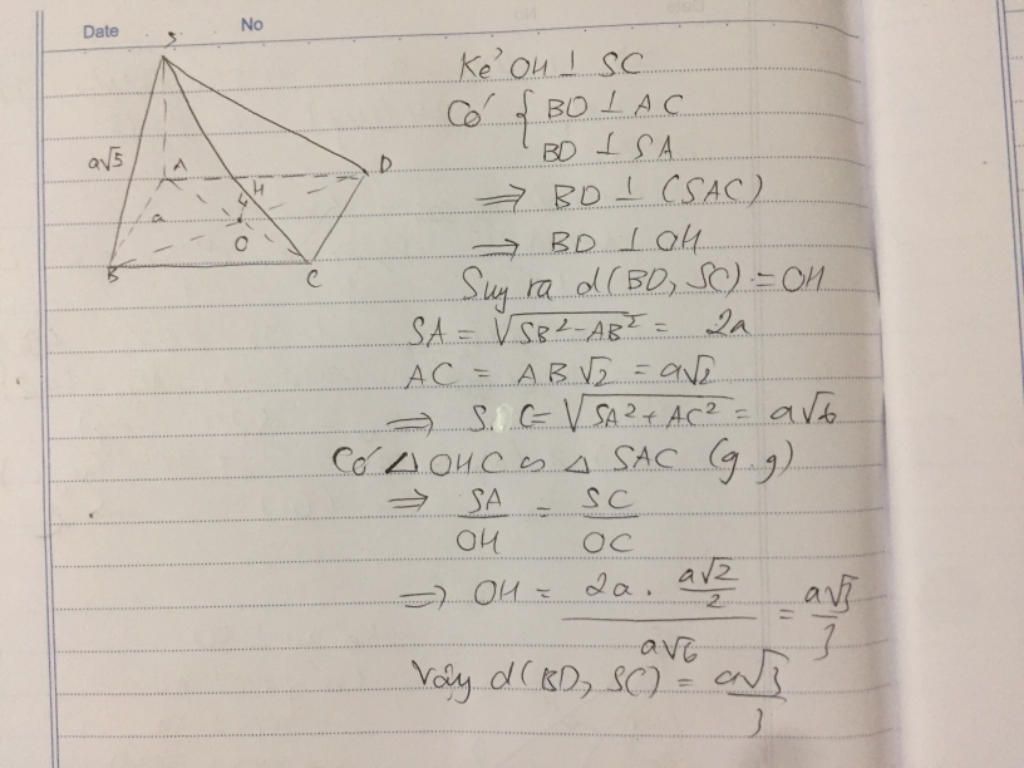 Date No
S
a√5
A
D
H
a
O
B
C
Kẻ OH ⊥ SC
Có { BD ⊥ AC
BD ⊥ SA
⇒ BD ⊥ (SAC)
⇒ BD ⊥ OH
Suy ra d(BD, SC) = OH
SA = √(SB² - AB²) = 2a
AC = AB√2 = a√2
⇒ SC = √(SA² + AC²) = a√6
Có △OHC ∽ △ SAC (g.g)
⇒ SA/OH = SC/OC
⇒ OH = (2a . a√2/2)/(a√6) = a√3/3
Vậy d(BD, SC) = a√3/3